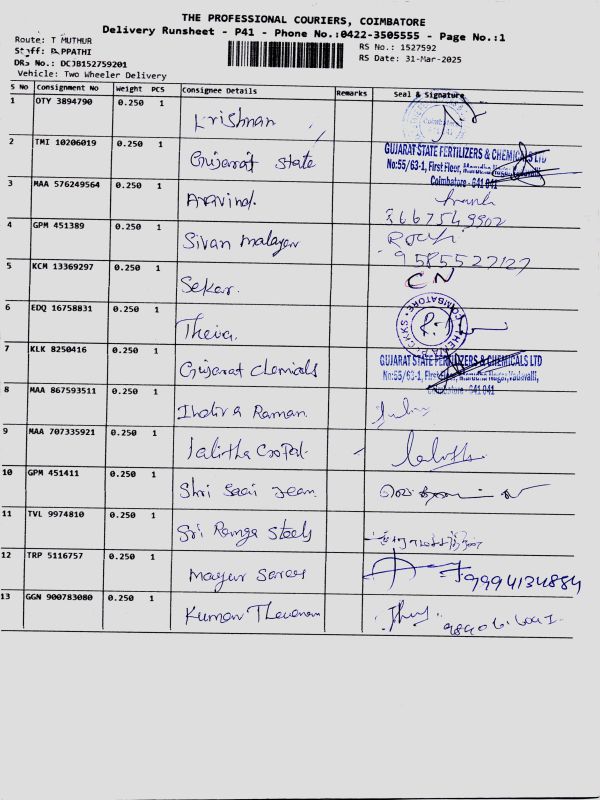 THE PROFESSIONAL COURIERS, COIMBATORE
Delivery Runsheet - P41 - Phone No.:0422-3505555 - Page No.:1
Route: T MUTHUR
RS No.: 1527592
Staff: PAPPATHI
RS Date: 31-Mar-2025
DRS No.: DCJB152759201
Vehicle: Two Wheeler Delivery
S No Consignment No Weight PCS Consignee Details Remarks Seal & Signature
1 OTY 3894790 0.250 1 Krishnan
2 TMI 10206019 0.250 1 Gujarat State
GUJARAT STATE FERTILIZERS & CHEMICALS LTD
No:55/63-1, First Floor,
Coimbatore - 641 041
3 MAA 576249564 0.250 1 Aravind.
4 GPM 451389 0.250 1 Sivan malayan
9585527127
5 KCM 13369297 0.250 1 Sekar.
CN
6 EDQ 16758831 0.250 1 Theiva.
COIMBATORE
7 KLK 8250416 0.250 1 Gujarat chemicals
GUJARAT STATE FERTILIZERS & CHEMICALS LTD
No:55/63-1, First Floor, Marudha Nagar, Vadavalli,
Coimbatore - 641 041
8 MAA 867593511 0.250 1 Indira Raman.
9 MAA 707335921 0.250 1 Lalitha Gopal.
Lalitha
10 GPM 451411 0.250 1 Shri Saai Jean.
11 TVL 9974810 0.250 1 Sri Ranga Steels
12 TRP 5116757 0.250 1 Mayur Sarees
9994134884
13 GGN 900783080 0.250 1 Kumar